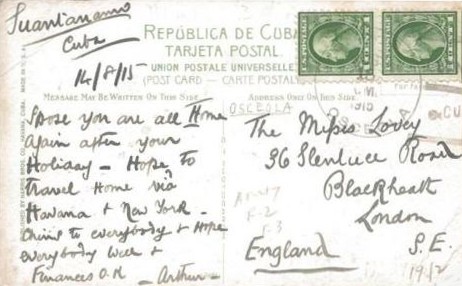 Guantanamo
Cuba
14/8/15
REPÚBLICA DE CUBA
TARJETA POSTAL
UNION POSTALE UNIVERSELLE
(POST CARD — CARTE POSTALE)
MESSAGE MAY BE WRITTEN ON THIS SIDE
ADDRESS ONLY ON THIS SIDE
U.S. POSTAGE
U.S. POSTAGE
OSCEOLA
1915
CU
Spose you are all Home
Again after your
Holiday — Hope to
travel Home via
Havana & New York —
to everybody & Hope
everybody well &
Finances O.K — Arthur —
The Misses Lovey
36 Glenluce Road
Blackheath
London
S.E.
England